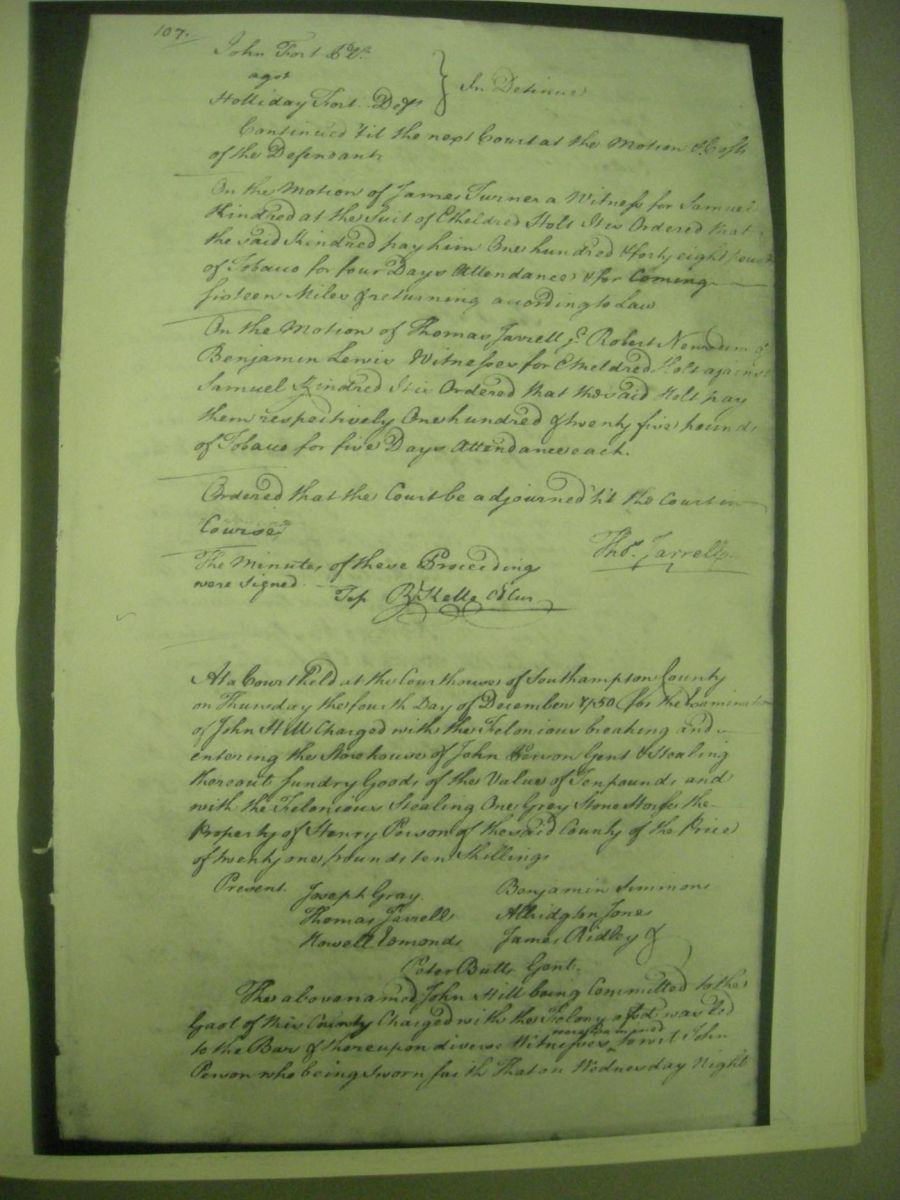 107.
John Fort
agst
Holliday Fort Deft
In Detinue
Continued 'til the next Court at the Motion & Costs
of the Defendant
On the Motion of James Turner a Witness for Samuel
Kindred at the Suit of Etheldred Holt It is Ordered that
the said Kindred pay him One hundred & forty eight pounds
of Tobacco for four Days Attendance & for Coming
sixteen Miles & returning according to Law
On the Motion of Thomas Jarrell Robert Newsum &
Benjamin Lewis Witnesses for Etheldred Holt against
Samuel Kindred It is Ordered that the said Holt pay
them respectively One hundred & twenty five pounds
of Tobacco for five Days Attendance each.
Ordered that the Court be adjourned 'til the Court in
Course
Thos. Jarrell
The Minutes of these Proceedings
were signed
R Kello Cl Cur
At a Court held at the Courthouse of Southampton County
on Thursday the fourth Day of December 1750 for the Examination
of John Hill Charged with the Felonious breaking and
entering the Storehouse of John Person Gent & Stealing
thereout sundry Goods of the Value of Ten pounds and
with the Felonious Stealing One Grey Stone Horse the
Property of Henry Person of the said County of the Price
of twenty one pounds ten Shillings
Present
Joseph Gray Benjamin Simmons
Thomas Jarrell Albridgton Jones
Howell Edmonds James Ridley &
Peter Butts Gent.
The above named John Hill being Committed to the
Gaol of this County Charged with the Felony afsd. was led
to the Bar & thereupon diverse Witnesses were Examined to wit John
Person who being Sworn saith That on Wednesday Night